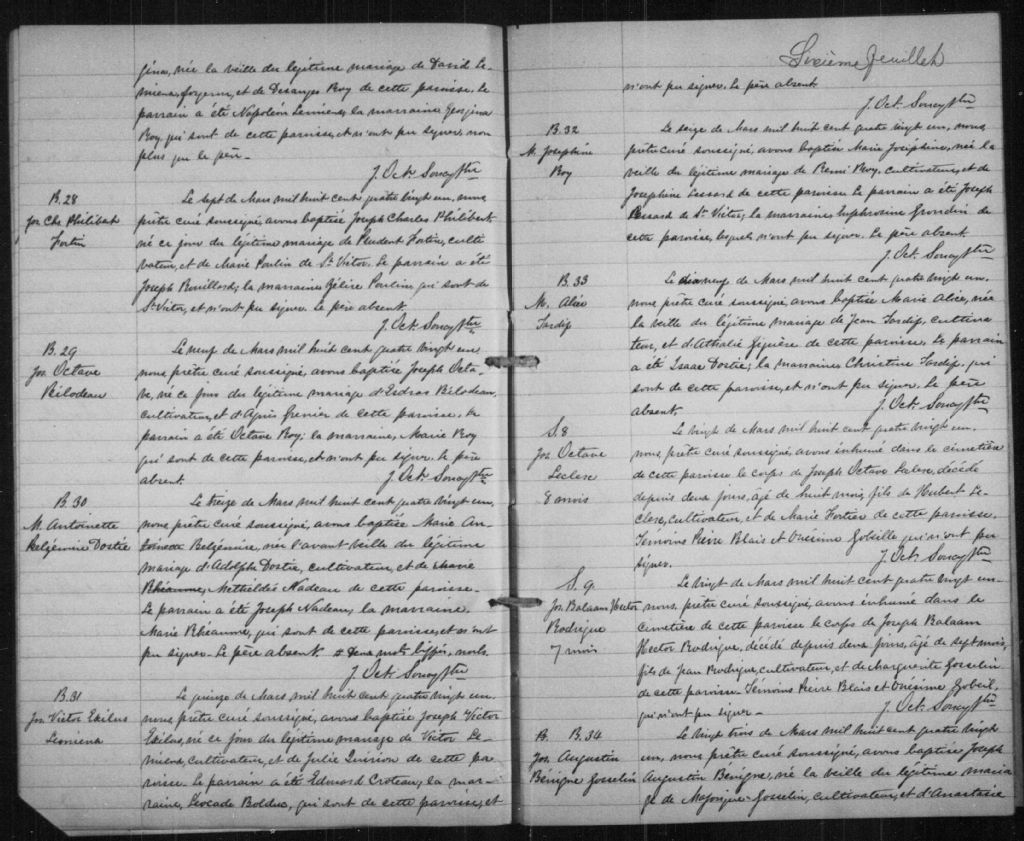 gina, née la veille du légitime mariage de David Le-
mieux, forgeron, et de Desanges Roy de cette paroisse. Le
parrain a été Napoléon Lemieux, la marraine Georgina
Roy, qui sont de cette paroisse, et n'ont pu signer, non
plus que le père.
J. Oct. Soucy Ptre
B. 28
Jos. Chs Philibert
Fortin
Le sept de Mars mil huit cent quatre vingt un, nous
prêtre curé soussigné, avons baptisé Joseph Charles Philibert
né ce jour du légitime mariage de Prudent Fortin, culti
vateur, et de Marie Poulin de St Victor. Le parrain a été
Joseph Rouillard; la marraine Zélire Poulin qui sont de
St Victor, et n'ont pu signer. Le père absent.
J. Oct. Soucy Ptre
B. 29
Jos. Octave
Bilodeau
Le neuf de Mars mil huit cent quatre vingt un
nous prêtre curé soussigné, avons baptisé Joseph Octa-
ve, né ce jour du légitime mariage d'Esdras Bilodeau,
cultivateur, et d'Agnès Grenier de cette paroisse. Le
parrain a été Octave Roy; la marraine, Marie Roy
qui sont de cette paroisse, et n'ont pu signer. Le père
absent.
J. Oct. Soucy Ptre
B. 30
M. Antoinette
Belzémire Dostie
Le treize de Mars mil huit cent quatre vingt un,
nous prêtre curé soussigné, avons baptisé Marie An-
toinette Belzémire, née l'avant veille du légitime
mariage d'Adolphe Dostie, cultivateur, et de Marie
Rhéaume, Methildée Nadeau de cette paroisse.
Le parrain a été Joseph Nadeau, la marraine,
Marie Rhéaume, qui sont de cette paroisse, et n'ont
pu signer. Le père absent. # deux mots biffés, nuls.
J. Oct. Soucy Ptre
B. 31
Jos. Victor Exilus
Lemieux
Le quinze de Mars mil huit cent quatre vingt un.
nous prêtre curé soussigné, avons baptisé Joseph Victor
Exilus, né ce jour du légitime mariage de Victor Le-
mieux, cultivateur, et de Julie Quirion de cette pa
roisse. Le parrain a été Edouard Croteau, la mar-
raine, Léocade Bolduc, qui sont de cette paroisse, et
Sixième feuillet
n'ont pu signer. Le père absent.
J. Oct. Soucy Ptre
B. 32
M. Joséphine
Roy
Le seize de Mars mil huit cent quatre vingt un, nous
prêtre curé soussigné, avons baptisé Marie Joséphine, née la
veille du légitime mariage de Rémi Roy, cultivateur, et de
Joséphine Lessard de cette paroisse. Le parrain a été Joseph
Lessard de St Victor, la marraine, Euphrosine Grondin de
cette paroisse, lesquels n'ont pu signer. Le père absent.
J. Oct. Soucy Ptre
B. 33
M. Alice
Tardif
Le dix neuf de Mars mil huit cent quatre vingt un.
nous prêtre curé soussigné, avons baptisé Marie Alice, née
la veille du légitime mariage de Jean Tardif, cultiva
teur, et d'Athalie Giguère de cette paroisse. Le parrain
a été Isaac Dostie; la marraine Christine Tardif, qui
sont de cette paroisse, et n'ont pu signer. Le père
absent.
J. Oct. Soucy Ptre
S. 8
Jos. Octave
Leclerc
8 mois
Le vingt de Mars mil huit cent quatre vingt un.
nous prêtre curé soussigné, avons inhumé dans le cimetière
de cette paroisse le corps de Joseph Octave Leclerc, décédé
depuis deux jours, agé de huit mois, fils de Hubert Le-
clerc, cultivateur, et de Marie Fortier de cette paroisse.
Témoins Pierre Blais et Onésime Gobeille qui n'ont pu
signer.
J. Oct. Soucy Ptre
S. 9
Jos. Balaam Hector
Rodrigue
7 mois
Le vingt de Mars mil huit cent quatre vingt un
nous, prêtre curé soussigné, avons inhumé dans le
cimetière de cette paroisse le corps de Joseph Balaam
Hector Rodrigue, décédé depuis deux jours, âgé de sept mois,
fils de Jean Rodrigue, cultivateur, et de Marguerite Gosselin
de cette paroisse. Témoins Pierre Blais et Onésime Gobeil,
qui n'ont pu signer.
J. Oct. Soucy Ptre
B. B. 34
Jos. Augustin
Bénigne Gosselin
Le vingt trois de Mars mil huit cent quatre vingt
un, nous prêtre curé soussigné, avons baptisé Joseph
Augustin Bénigne, né la veille du légitime maria
ge de Majorique Gosselin, cultivateur, et d'Anastasie